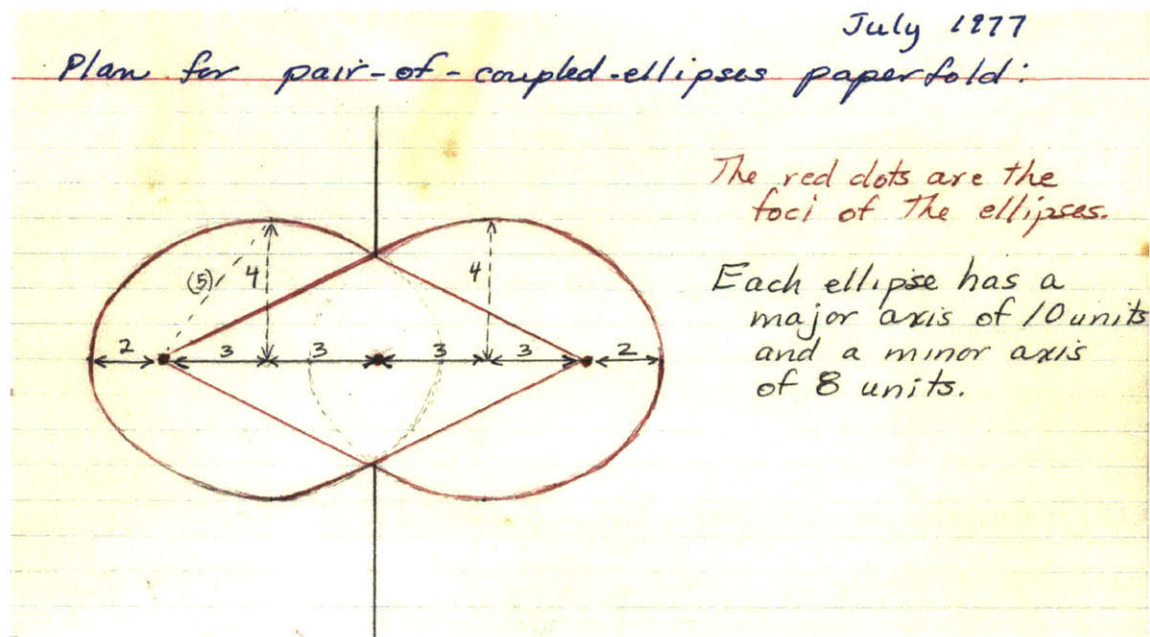 July 1977
Plan for pair-of-coupled-ellipses paperfold:
The red dots are the
foci of the ellipses.
Each ellipse has a
major axis of 10 units
and a minor axis
of 8 units.
(5) 4 4
2 3 3 3 3 2